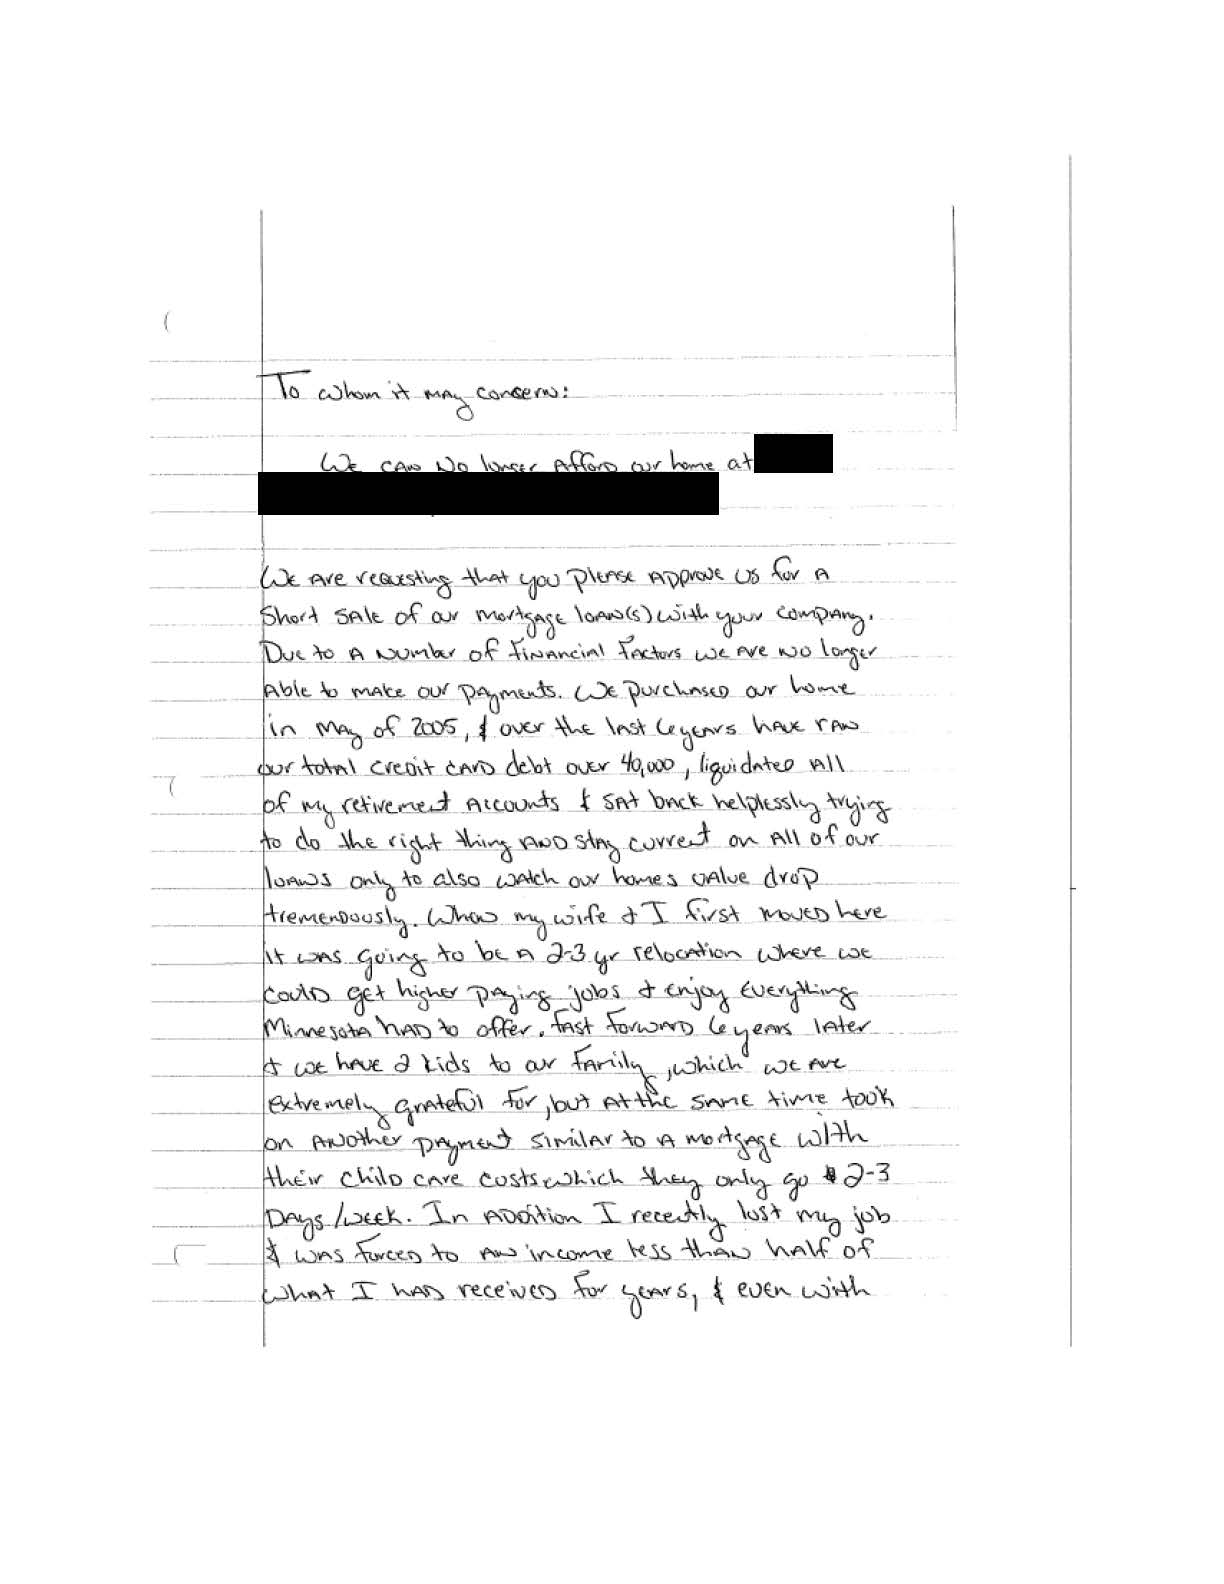 To whom it may concern:
We can no longer afford our home at
We are requesting that you please approve us for a
short sale of our mortgage loan(s) with your company.
Due to a number of financial factors we are no longer
able to make our payments. We purchased our home
in May of 2005, & over the last 6 years have ran
our total credit card debt over 40,000, liquidated all
of my retirement accounts & sat back helplessly trying
to do the right thing and stay current on all of our
loans only to also watch our homes value drop
tremendously. When my wife & I first moved here
it was going to be a 2-3 yr relocation where we
could get higher paying jobs & enjoy everything
Minnesota had to offer. Fast forward 6 years later
& we have 2 kids to our family, which we are
extremely grateful for, but at the same time took
on another payment similar to a mortgage with
their child care costs which they only go 2-3
days/week. In addition I recently lost my job
& was forced to an income less than half of
what I had received for years, & even with